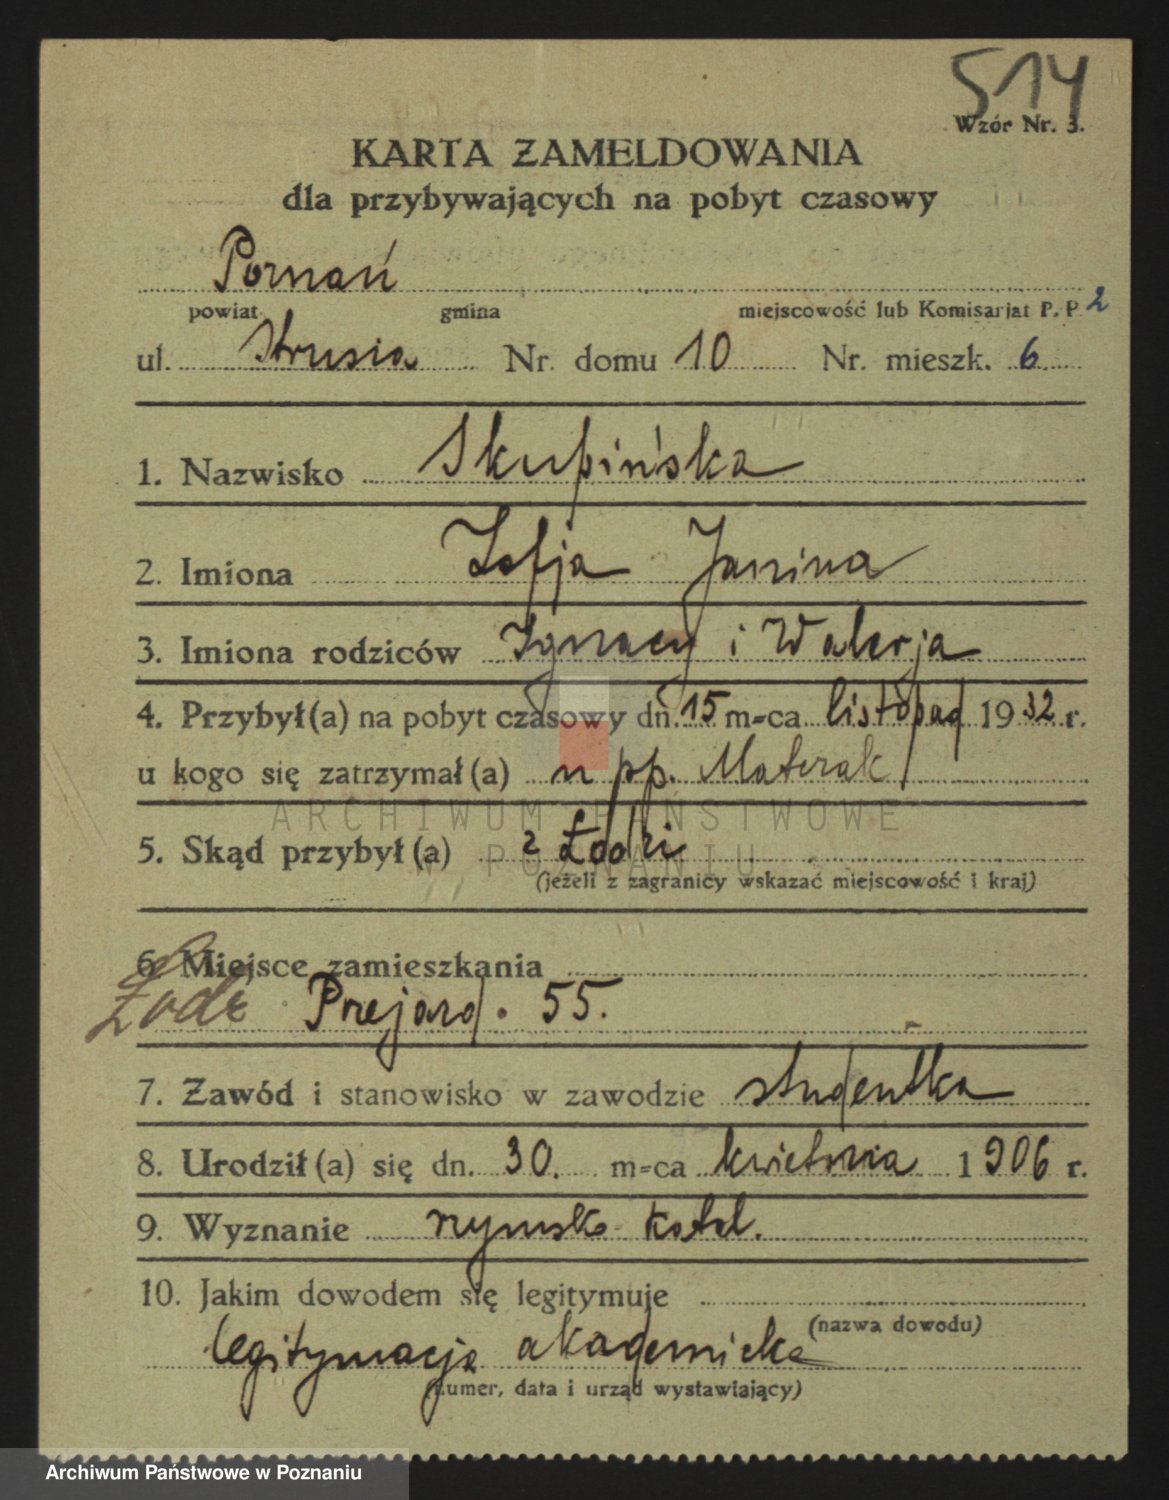 514
Wzór Nr. 3.
KARTA ZAMELDOWANIA
dla przybywających na pobyt czasowy
Poznań
powiat gmina miejscowość lub Komisarjat P. P. 2
ul. Strusia Nr. domu 10 Nr. mieszk. 6
1. Nazwisko Skupińska
2. Imiona Zofja Janina
3. Imiona rodziców Ignacy i Walerja
4. Przybył(a) na pobyt czasowy dn. 15 m-ca listopad 1932 r.
u kogo się zatrzymał(a) u pp. Materak
ARCHIWUM PAŃSTWOWE
5. Skąd przybył(a) z Łodzi
W POZNANIU
(jeżeli z zagranicy wskazać miejscowość i kraj)
6. Miejsce zamieszkania
Łódź Przejazd. 55.
7. Zawód i stanowisko w zawodzie studentka
8. Urodził(a) się dn. 30. m-ca kwietnia 1906 r.
9. Wyznanie rzymsko-katol.
10. Jakim dowodem się legitymuje
(nazwa dowodu)
legitymacja akademicka
(numer, data i urząd wystawiający)
Archiwum Państwowe w Poznaniu